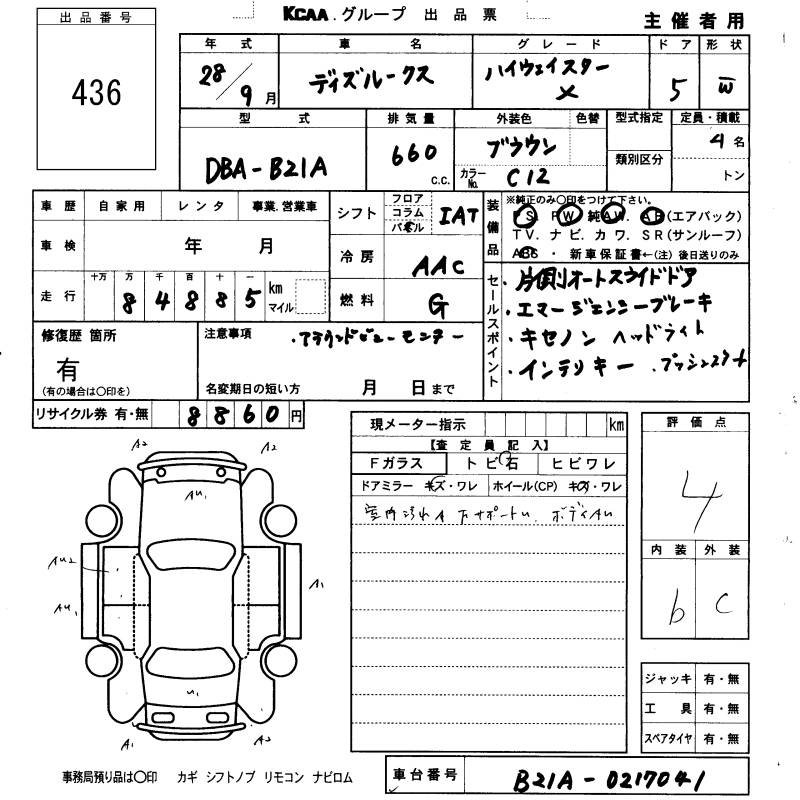 KCAA.グループ 出品票
主催者用
出品番号
436
年式 車名 グレード ドア 形状
28/9月 ディズルークス ハイウェイスター X 5 W
型式 排気量 外装色 色替 型式指定 定員・積載
DBA-B21A 660 c.c. ブラウン 類別区分 4名
カラーNo. C12 トン
車歴 自家用 レンタ 事業.営業車
車検 年 月
走行 十万 万 千 百 十 一
8 4 8 8 5 km マイル
シフト フロア コラム パネル IAT
冷房 AAC
燃料 G
装備品 ※純正のみ○印をつけて下さい。
PS PW 純AW. AB(エアバック)
TV. ナビ. カワ. SR(サンルーフ)
ABS ・ 新車保証書←(注) 後日送りのみ
セールスポイント
・片側オートスライドドア
・エマージェンシーブレーキ
・キセノン ヘッドライト
・インテリキー .プッシュスタート
修復歴 箇所
有
(有の場合は○印を)
注意事項 .アラウンドビューモニター
名変期日の短い方 月 日まで
リサイクル券 有・無 8860円
現メーター指示 km
【査定員記入】
Fガラス トビ石 ヒビワレ
ドアミラー キズ・ワレ ホイール(CP) キズ・ワレ
室内汚れA 下サポートU. ボディAU
評価点
4
内装 外装
b c
ジャッキ 有・無
工具 有・無
スペアタイヤ 有・無
A2 A2
AU1
AU2
AU1 A1
U1
A1 A2
事務局預り品は○印 カギ シフトノブ リモコン ナビロム
車台番号 B21A-0217041